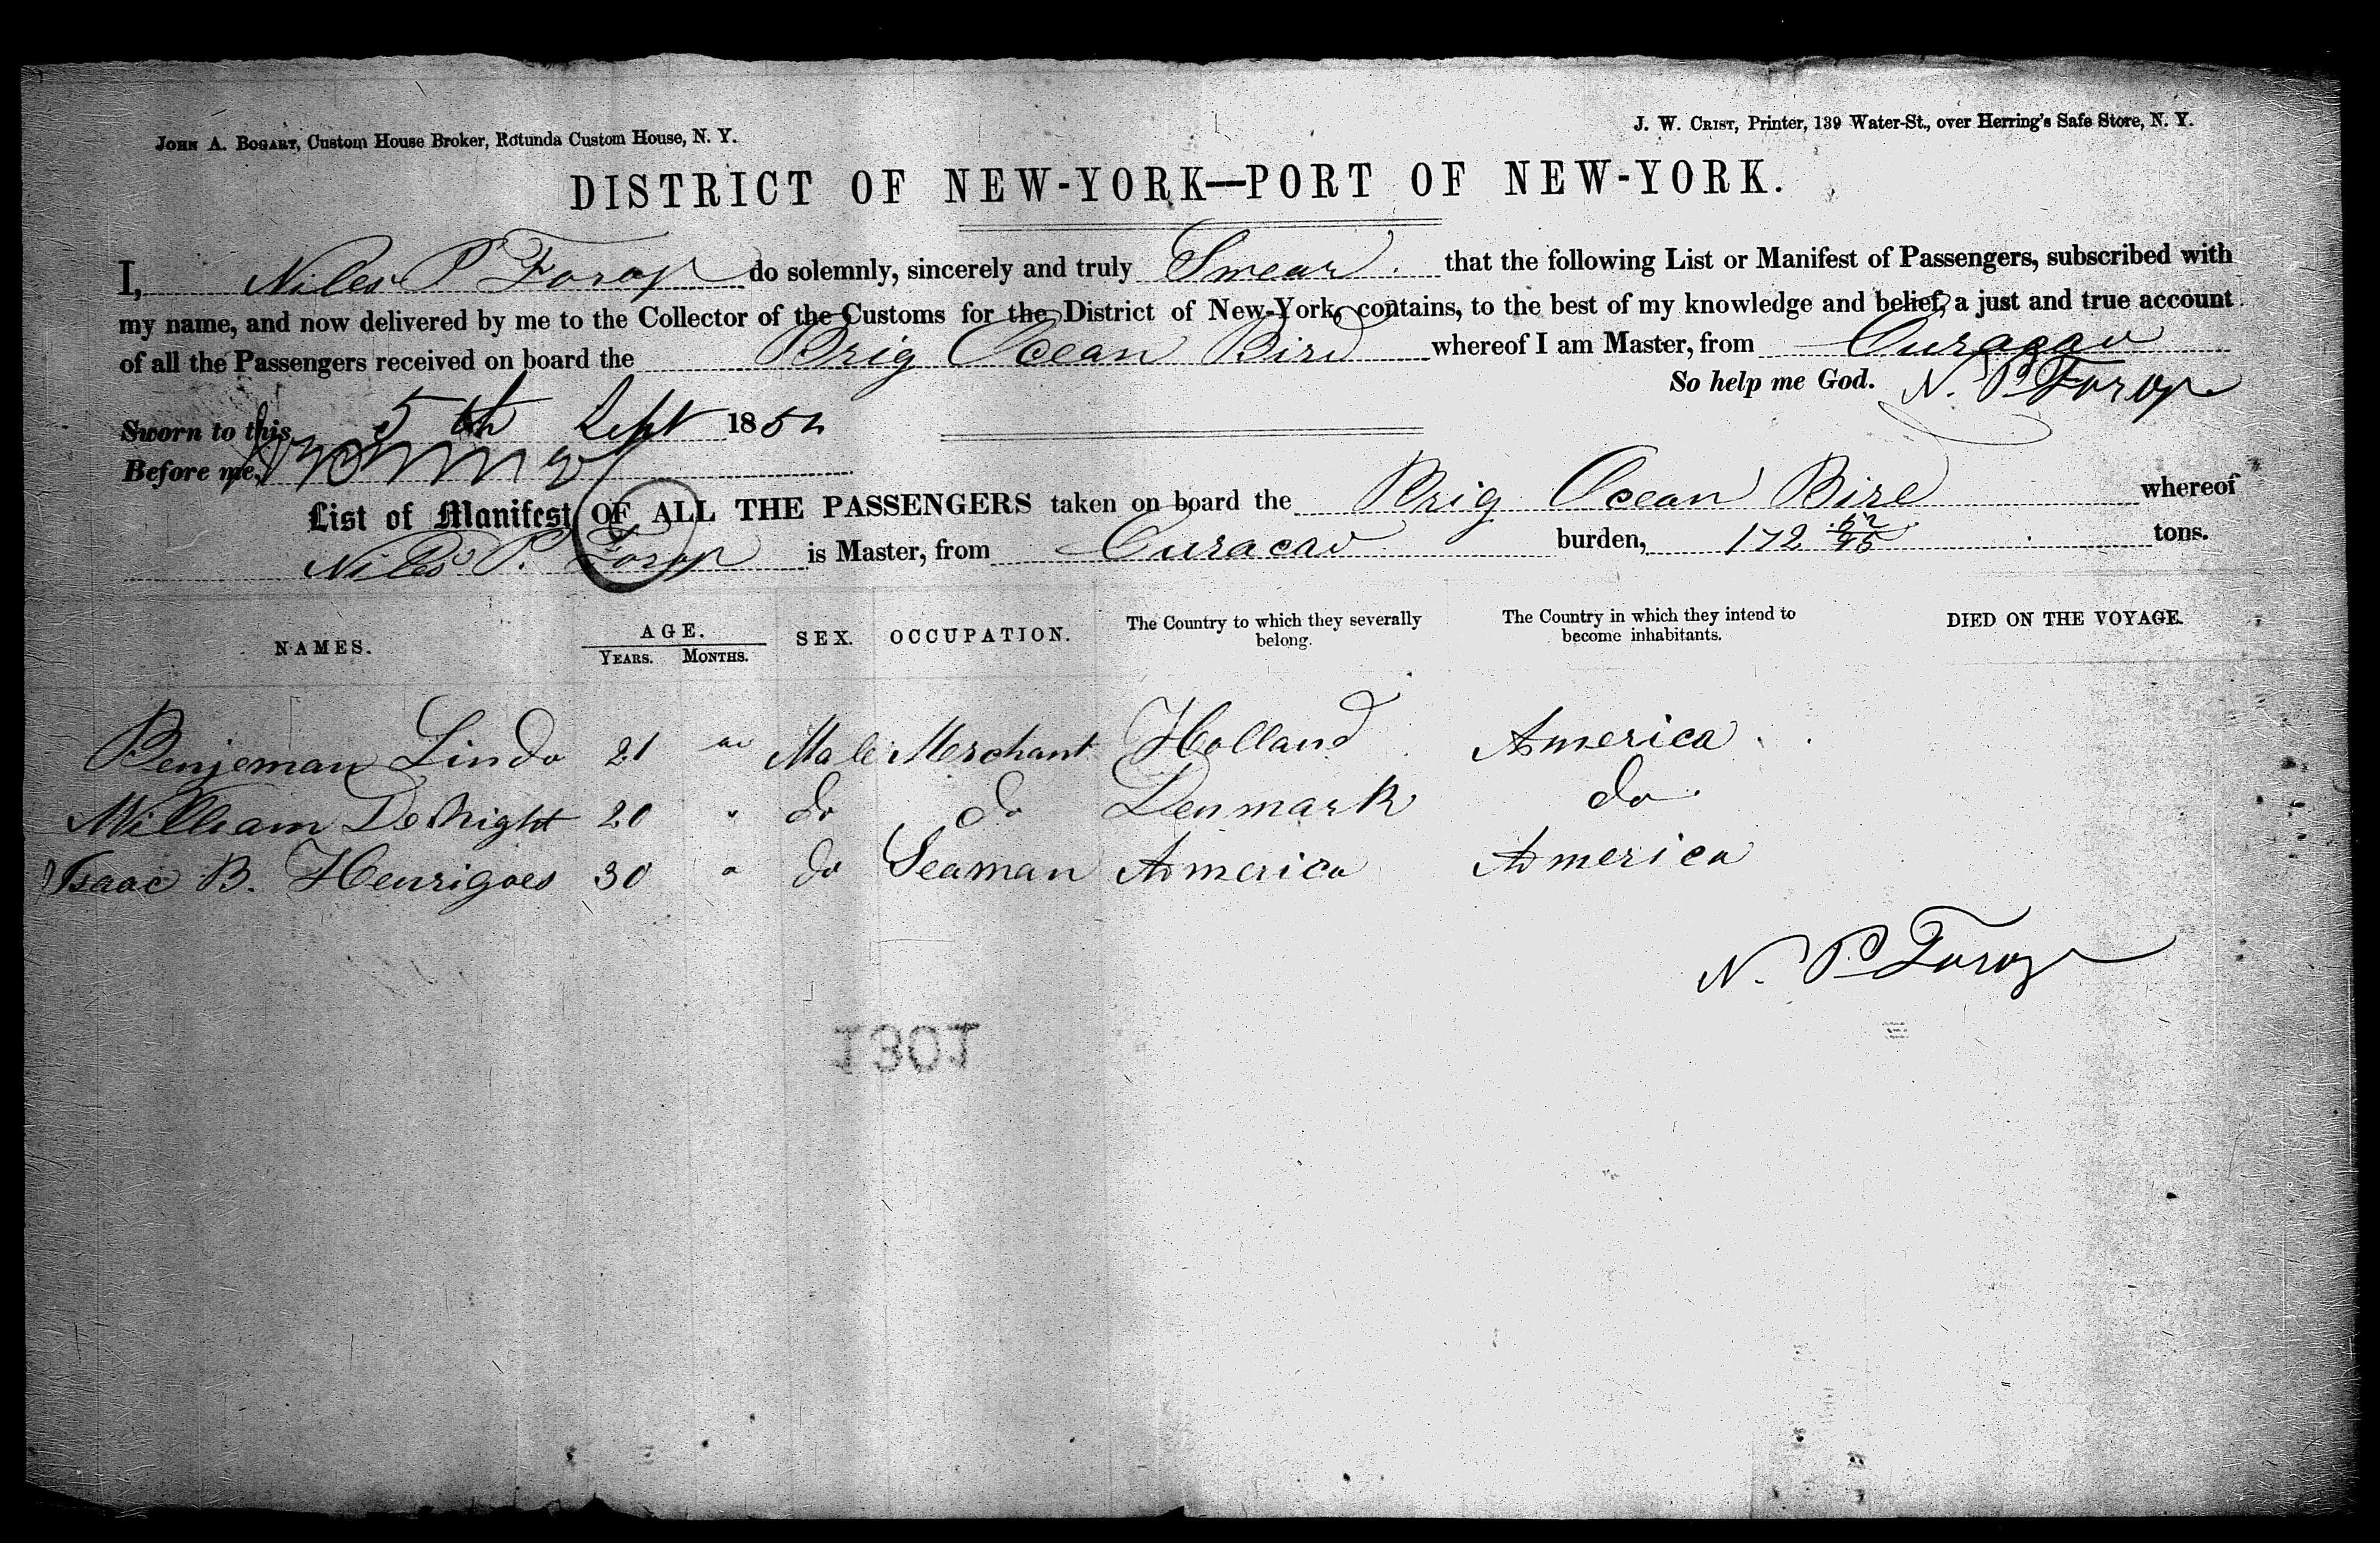 JOHN A. BOGART, Custom House Broker, Rotunda Custom House, N. Y.
J. W. CRIST, Printer, 139 Water-St., over Herring's Safe Store, N. Y.
DISTRICT OF NEW-YORK—PORT OF NEW-YORK.
I, Niles P do solemnly, sincerely and truly Swear that the following List or Manifest of Passengers, subscribed with
my name, and now delivered by me to the Collector of the Customs for the District of New-York, contains, to the best of my knowledge and belief, a just and true account
of all the Passengers received on board the Brig Ocean Bird whereof I am Master, from Curacao
So help me God. N. P.
Sworn to this 5th Sept 185
Before me,
List of Manifest OF ALL THE PASSENGERS taken on board the Brig Ocean Bird whereof
Niles P. is Master, from Curacao burden, 172 tons.
NAMES. AGE. YEARS. MONTHS. SEX. OCCUPATION. The Country to which they severally belong. The Country in which they intend to become inhabitants. DIED ON THE VOYAGE.
Benjeman Lindo 21 Male Merchant Holland America
William 20 " do do Denmark do
Isaac B. Henrigoes 30 " do Seaman America America
N. P.
1301